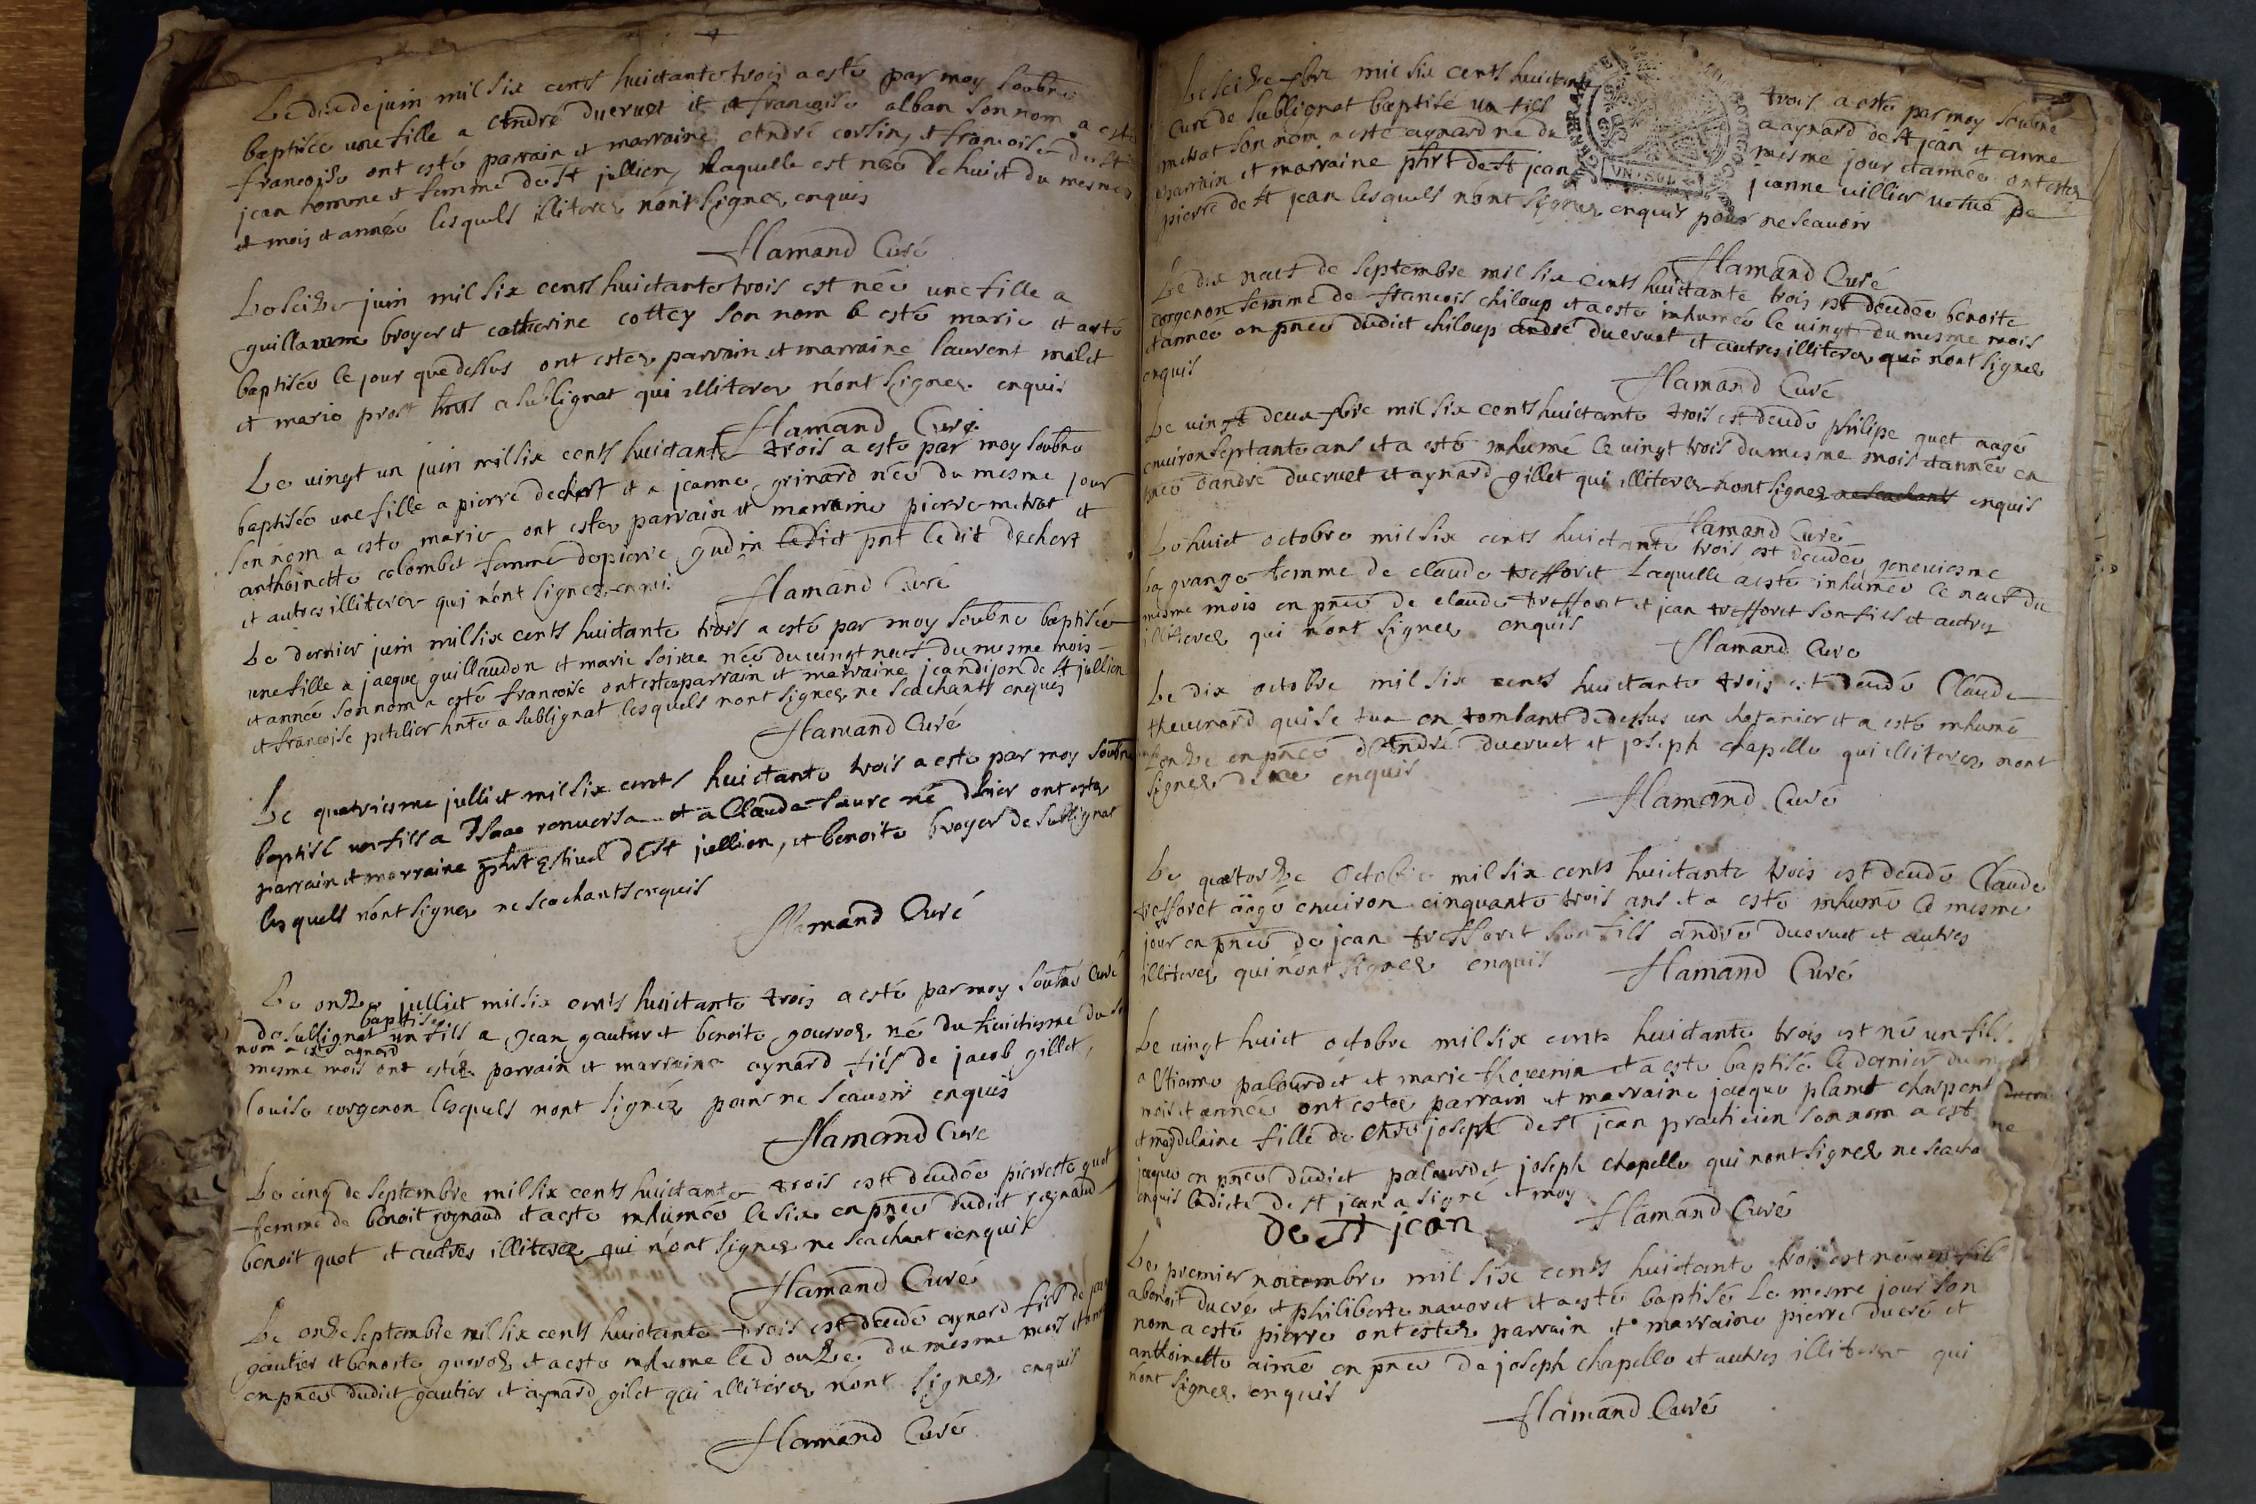 Le dix de juin mil six cents huictante trois a esté par moy soubne
baptisée une fille a André ducruet et a francoise alban son nom a esté
francoise ont esté parrain et marraine André corsin et francoise de st
jean homme et femme de st jullien laquelle est née le huict du mesme
et mois et année lesquels illiteres n'ont signez enquis
flamand Curé
Le seize juin mil six cents huictante trois est née une fille a
guillaume broyer et catherine cottey son nom a esté marie et a esté
baptisée le jour que dessus ont estez parrain et marraine laurent malet
et marie prost tous a sublignat qui illiteres n'ont signez enquis
flamand Curé
Le vingt un juin mil six cents huictante trois a esté par moy soubne
baptisée une fille a pierre dechert et a jeanne grinard née du mesme jour
son nom a esté marie ont estez parrain et marraine pierre metrat et
anthoinette colombet femme de pierre gudin ledict pnt ledit dechert
et autres illiteres qui n'ont signez enquis
flamand Curé
Le dernier juin mil six cents huictante trois a esté par moy soubne baptisée
une fille a jacque guillaudon et marie soirae née du vingt neuf du mesme mois
et année son nom a esté francoise ont estez parrain et marraine jean dijon de st jullien
et francoise petelier hnte a sublignat lesquels nont signez ne scachants enquis
flamand Curé
Le quatriesme julliet mil six cents huictante trois a esté par moy soubne
baptisé un fils a Isaac renversa et a Clauda faure né d'hier ont estez
parrain et marraine phrt estival de st jullien, et benoite broyer de sublignat
lesquels n'ont signez ne scachants enquis
flamand Curé
Le onze julliet mil six cents huictante trois a esté par moy soubne Curé
de sublignat baptisé un fils a jean gautier et benoite gourroz né du huictiesme du son
nom a esté aynard
mesme mois ont estéz parrain et marraine aynard fils de jacob gillet,
louise corgenon lesquels nont signéz pour ne scavoir enquis
flamand Curé
Le cinq de septembre mil six cents huictante trois est decedée pierrette quet
femme de benoit reynaud et a esté inhumée le six en pnce dudict reynaud
benoit quet et autres illiteres qui n'ont signez ne scachant enquis
flamand Curé
Le onze septembre mil six cents huictante trois est decedé aynard fils de jean
gautier et benoite gurroz et a esté inhumé le douze du mesme mois et année
en pnce dudict gautier et aynard gilet qui illiteres n'ont signez enquis
flamand Curé
Le seize 7bre mil six cents huictante trois a esté par moy soubne
curé de sublignat baptisé un fils a aynard de st jean et anne
metrat son nom a esté aynard né du mesme jour et année ont estez
parrain et marraine phrt de st jean jeanne villier vefue de
pierre de st jean lesquels n'ont signez enquis pour ne scavoir
flamand Curé
Le dix neuf de septembre mil six cents huictante trois est decedée benoite
corgenon femme de francois chiloup et a esté inhumée le vingt du mesme mois
et année en pnce dudict chiloup andré ducruet et autres illiteres qui n'ont signez
enquis
flamand Curé
Le vingt deux 7bre mil six cents huictante trois est decedé philipe quet aagé
environ septante ans et a esté inhumé le vingt trois du mesme mois et année en
pnce d'andré ducruet et aynard gillet qui illiteres n'ont signez ne scachants enquis
flamand Curé
Le huict octobre mil six cents huictante trois est decedée geneviesme
la grange femme de claude treffort laquelle a esté inhumée le neuf du
mesme mois en pnce de claude treffort et jean treffort son fils et autres
illiteres qui n'ont signez enquis
flamand Curé
Le dix octobre mil six cents huictante trois est decedé Claude
thevenard qui se tua en tombant de dessus un chatanier et a esté inhumé
l'onze en pnce d'André ducruet et joseph chapelle qui illiteres n'ont
signez de ce enquis
flamand Curé
Le quatorze octobre mil six cents huictante trois est decedé Claude
treffort aagé environ cinquante trois ans et a esté inhumé le mesme
jour en pnce de jean treffort son fils andré ducruet et autres
illiteres qui n'ont signez enquis
flamand Curé
Le vingt huict octobre mil six cents huictante trois est né un fils
a Etienne palourdet et marie thevenin et a esté baptisé le dernier du mesme
mois et année ont estez parrain et marraine jacque planet charpent
et magdelaine fille de joseph de st jean praticien son nom a esté
jaque en pnce dudict palourdet joseph chapelle qui n'ont signez ne scacha
enquis ladicte de st jean a signé et moy
De St jean
flamand Curé
Le premier novembre mil six cents huictante trois est né un fils
a benoit ducré et philiberte navoret et a esté baptisé le mesme jour son
nom a esté pierre ont estez parrain et marraine pierre ducré et
anthoinette aimé en pnce de joseph chapelle et autres illiteres qui
n'ont signez enquis
flamand Curé